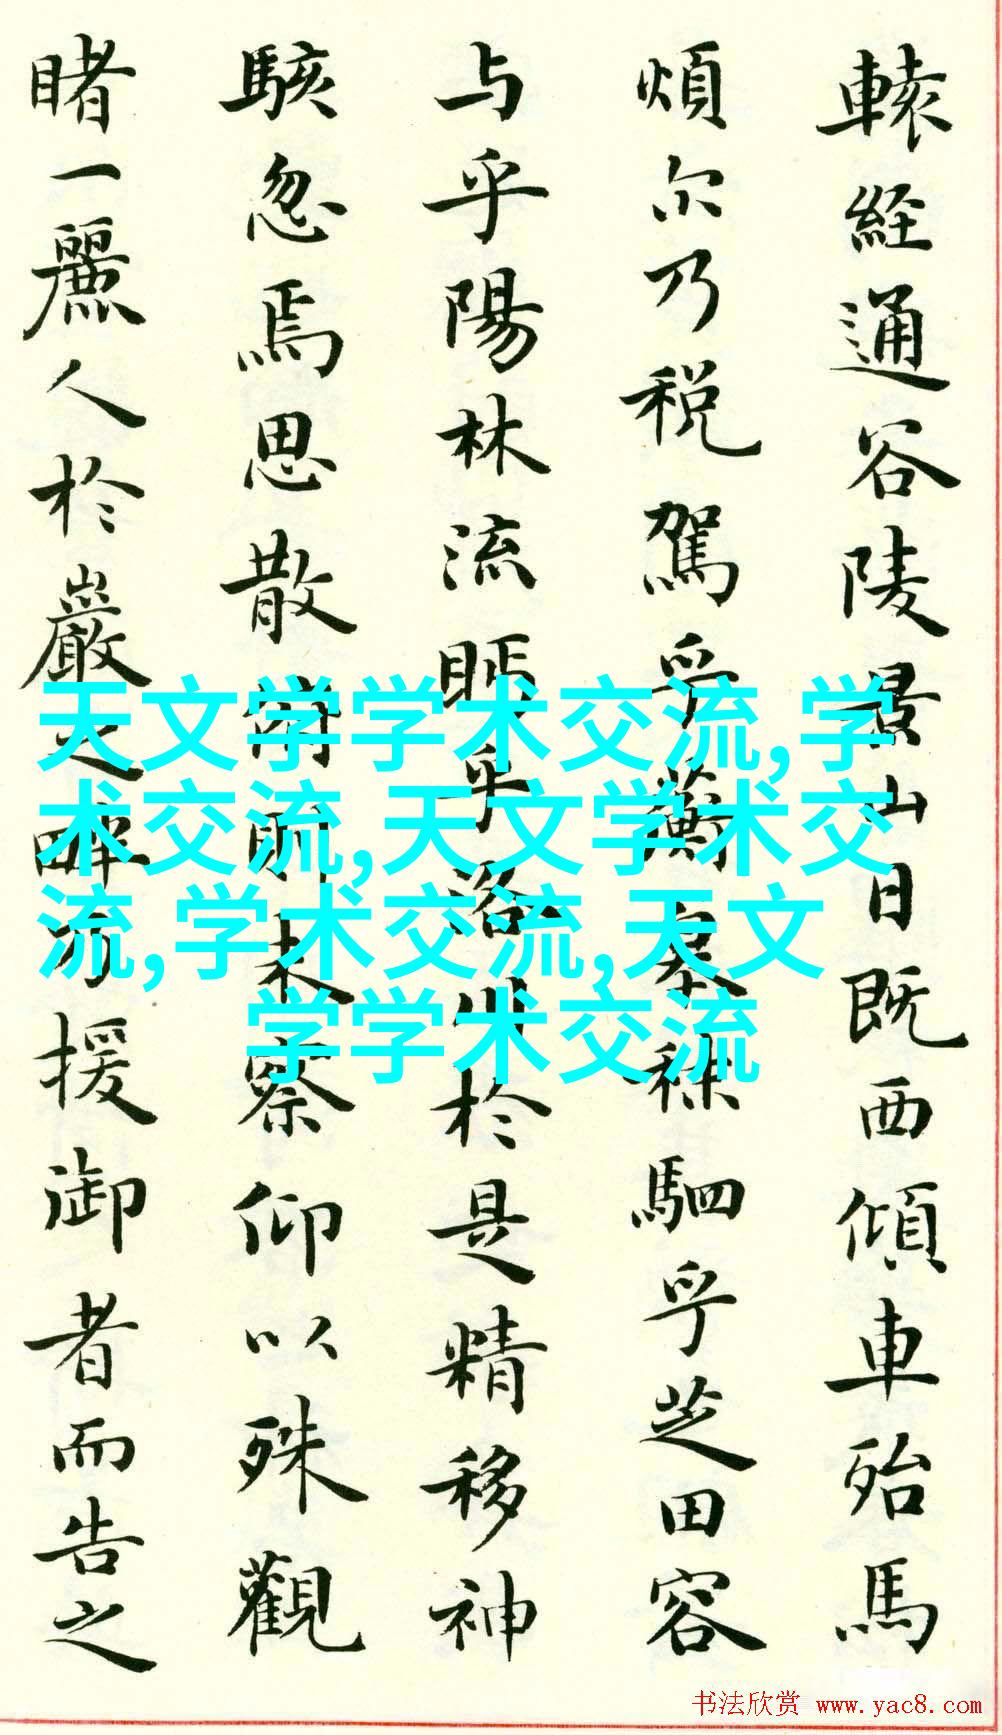 轅経通谷陵景山日既西傾車殆馬
煩尔乃税駕乎蘅皋秣駟乎芝田容
与乎陽林流眄乎洛川於是精移神
駭忽焉思散俯則未察仰以殊觀
睹一麗人於巖之畔乃援御者而告之
天文学学术交流,学
术交流,天文学术交
流,学术交流,天文
学学术交流
书法欣赏 www.yac8.com